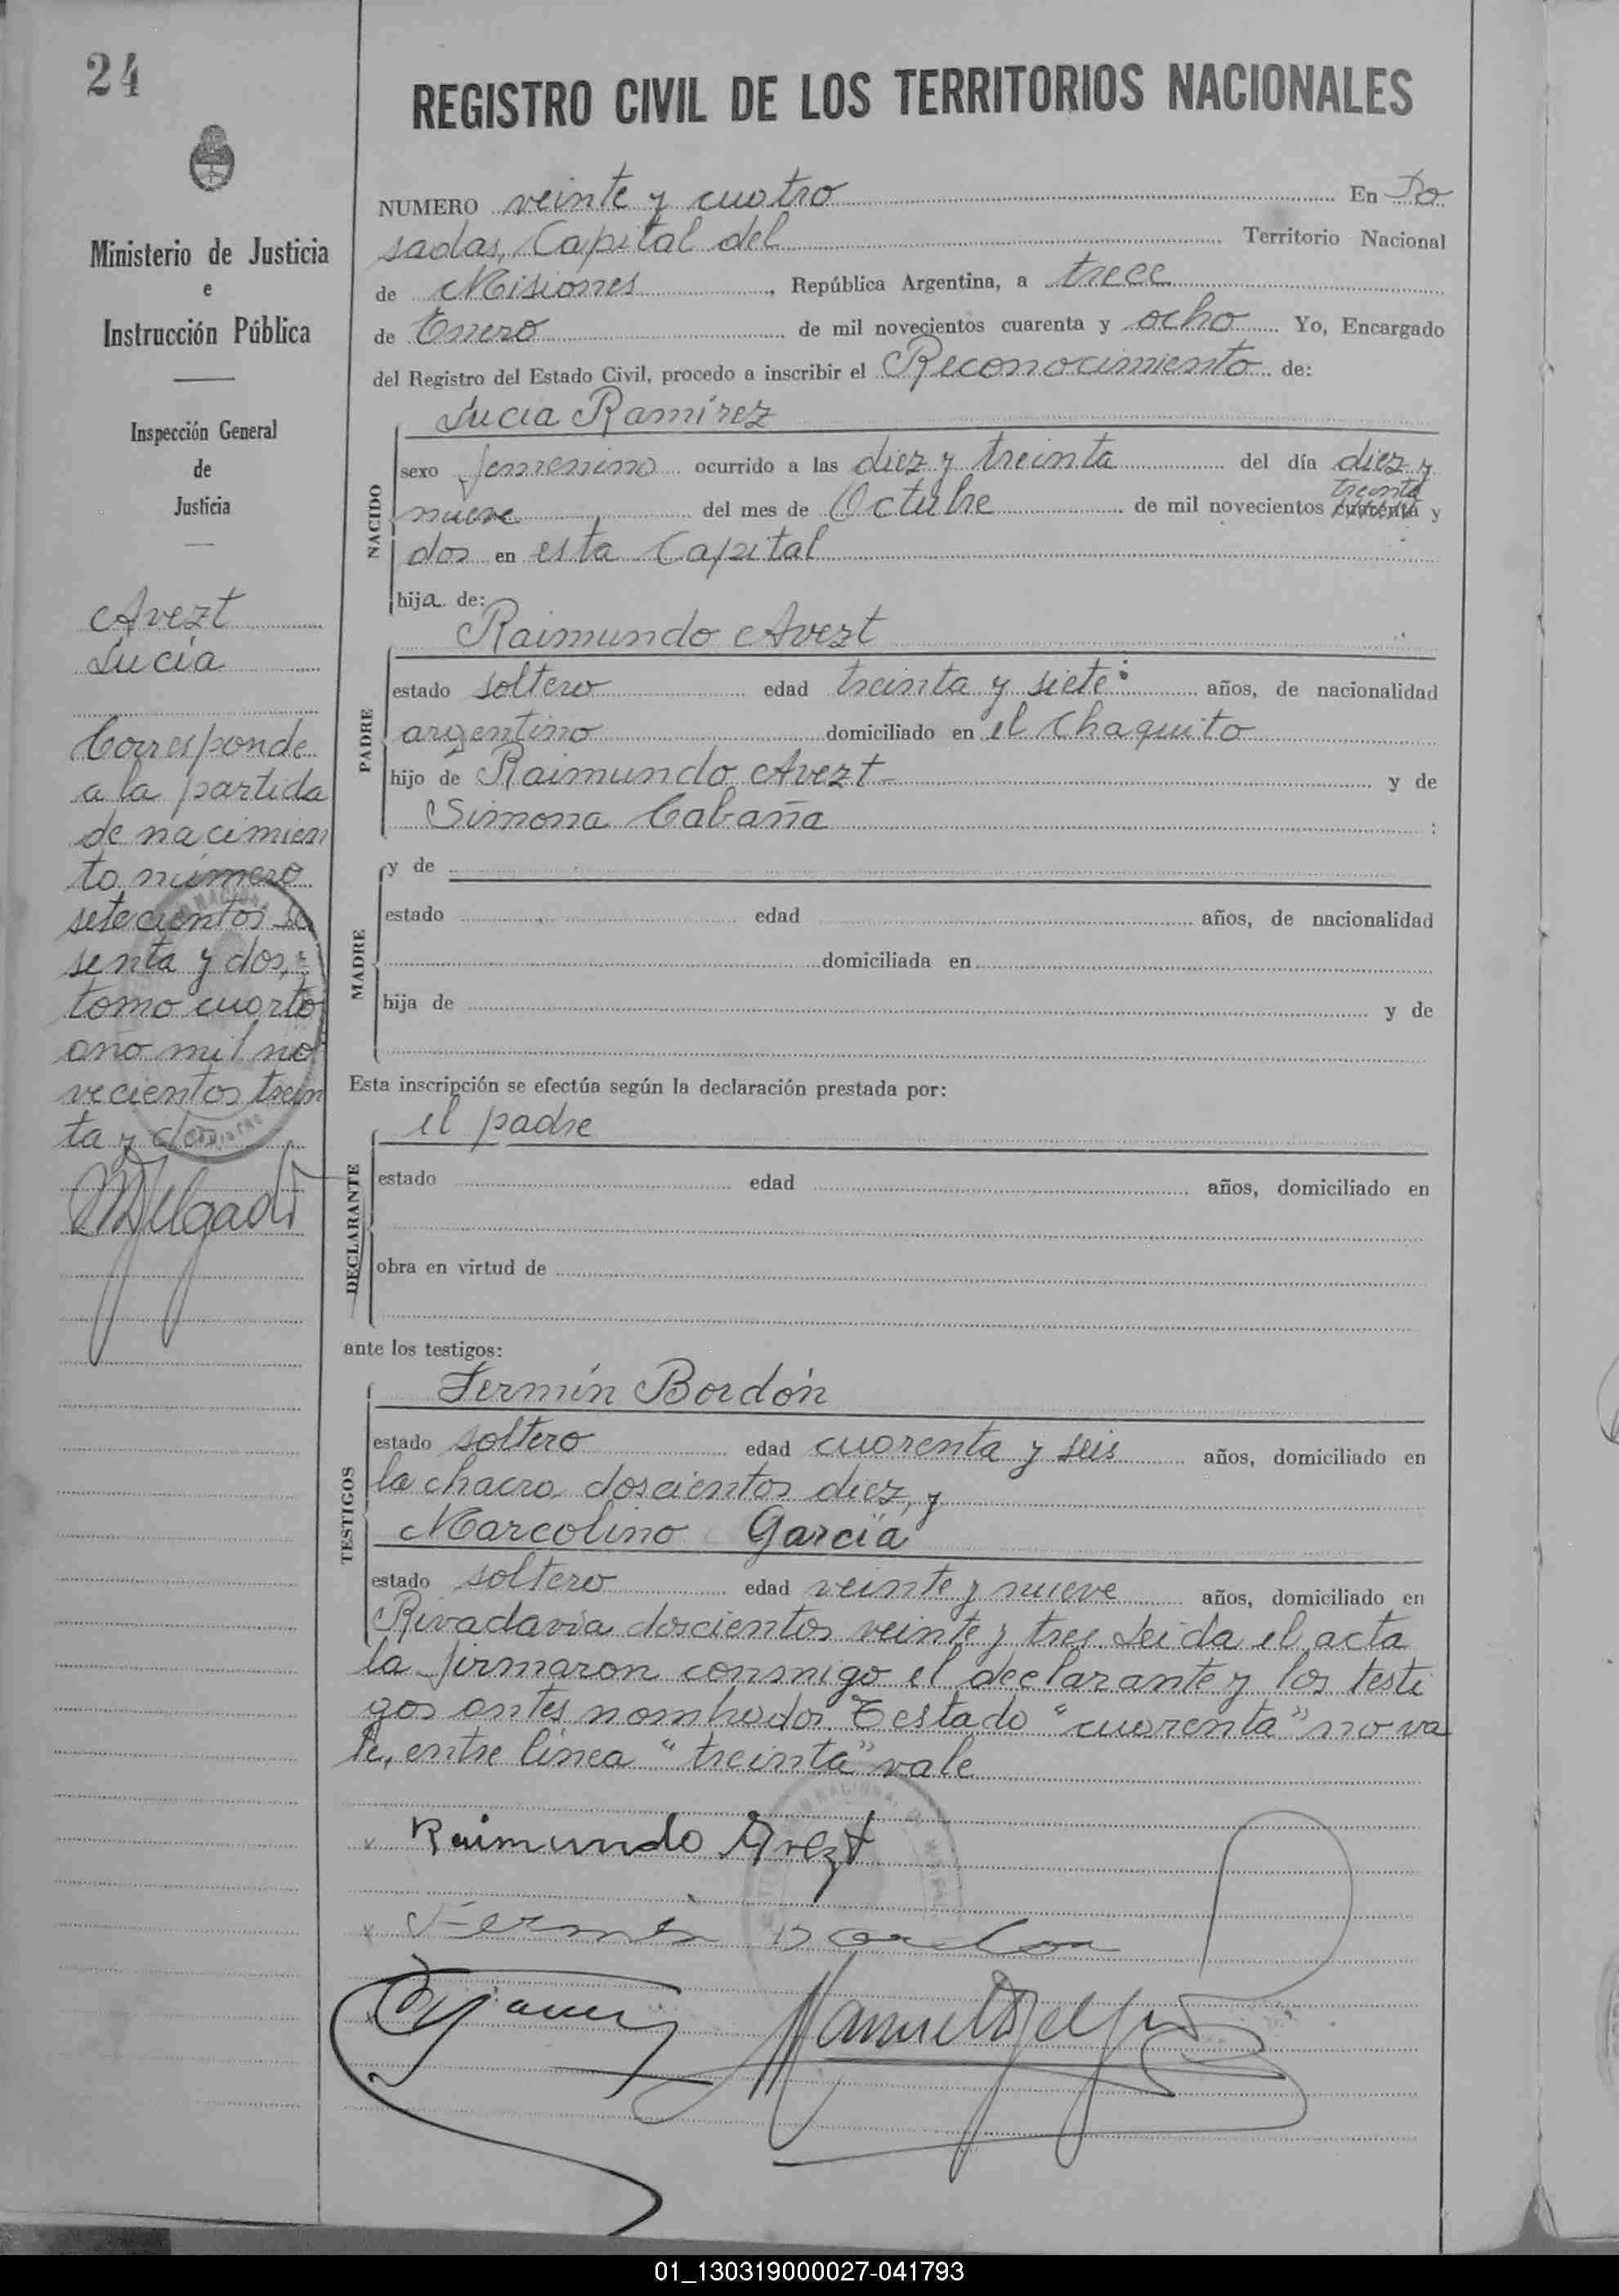 24
REGISTRO CIVIL DE LOS TERRITORIOS NACIONALES
Ministerio de Justicia
e
Instrucción Pública
Inspección General
de
Justicia
Avezt
Lucía
Corresponde
a la partida
de nacimien
to número
setecientos se
senta y dos,
tomo cuarto
año mil no
vecientos trein
ta y dos
MDelgado
NUMERO veinte y cuatro En Po
sadas, Capital del Territorio Nacional
de Misiones, República Argentina, a trece
de Enero de mil novecientos cuarenta y ocho Yo, Encargado
del Registro del Estado Civil, procedo a inscribir el Reconocimiento de:
Lucía Ramírez
NACIDO
sexo femenino ocurrido a las diez y treinta del día diez y
treinta
nueve del mes de Octubre de mil novecientos cuarenta y
dos en esta Capital
hija de:
Raimundo Avezt
PADRE
estado soltero edad treinta y siete años, de nacionalidad
argentino domiciliado en el Chaquito
hijo de Raimundo Avezt y de
Simona Cabaña
MADRE
y de
estado edad años, de nacionalidad
domiciliada en
hija de y de
Esta inscripción se efectúa según la declaración prestada por:
el padre
DECLARANTE
estado edad años, domiciliado en
obra en virtud de
ante los testigos:
Fermín Bordón
TESTIGOS
estado soltero edad cuarenta y seis años, domiciliado en
la chacra doscientos diez, y
Marcolino García
estado soltero edad veinte y nueve años, domiciliado en
Rivadavia doscientos veinte y tres. Leida el acta
la firmaron conmigo el declarante y los testi
gos antes nombrados. Testado "cuarenta" no va
le, entre línea "treinta" vale
x Raimundo Avezt
x Fermin Bordon
Manuel Delgado
01_130319000027-041793